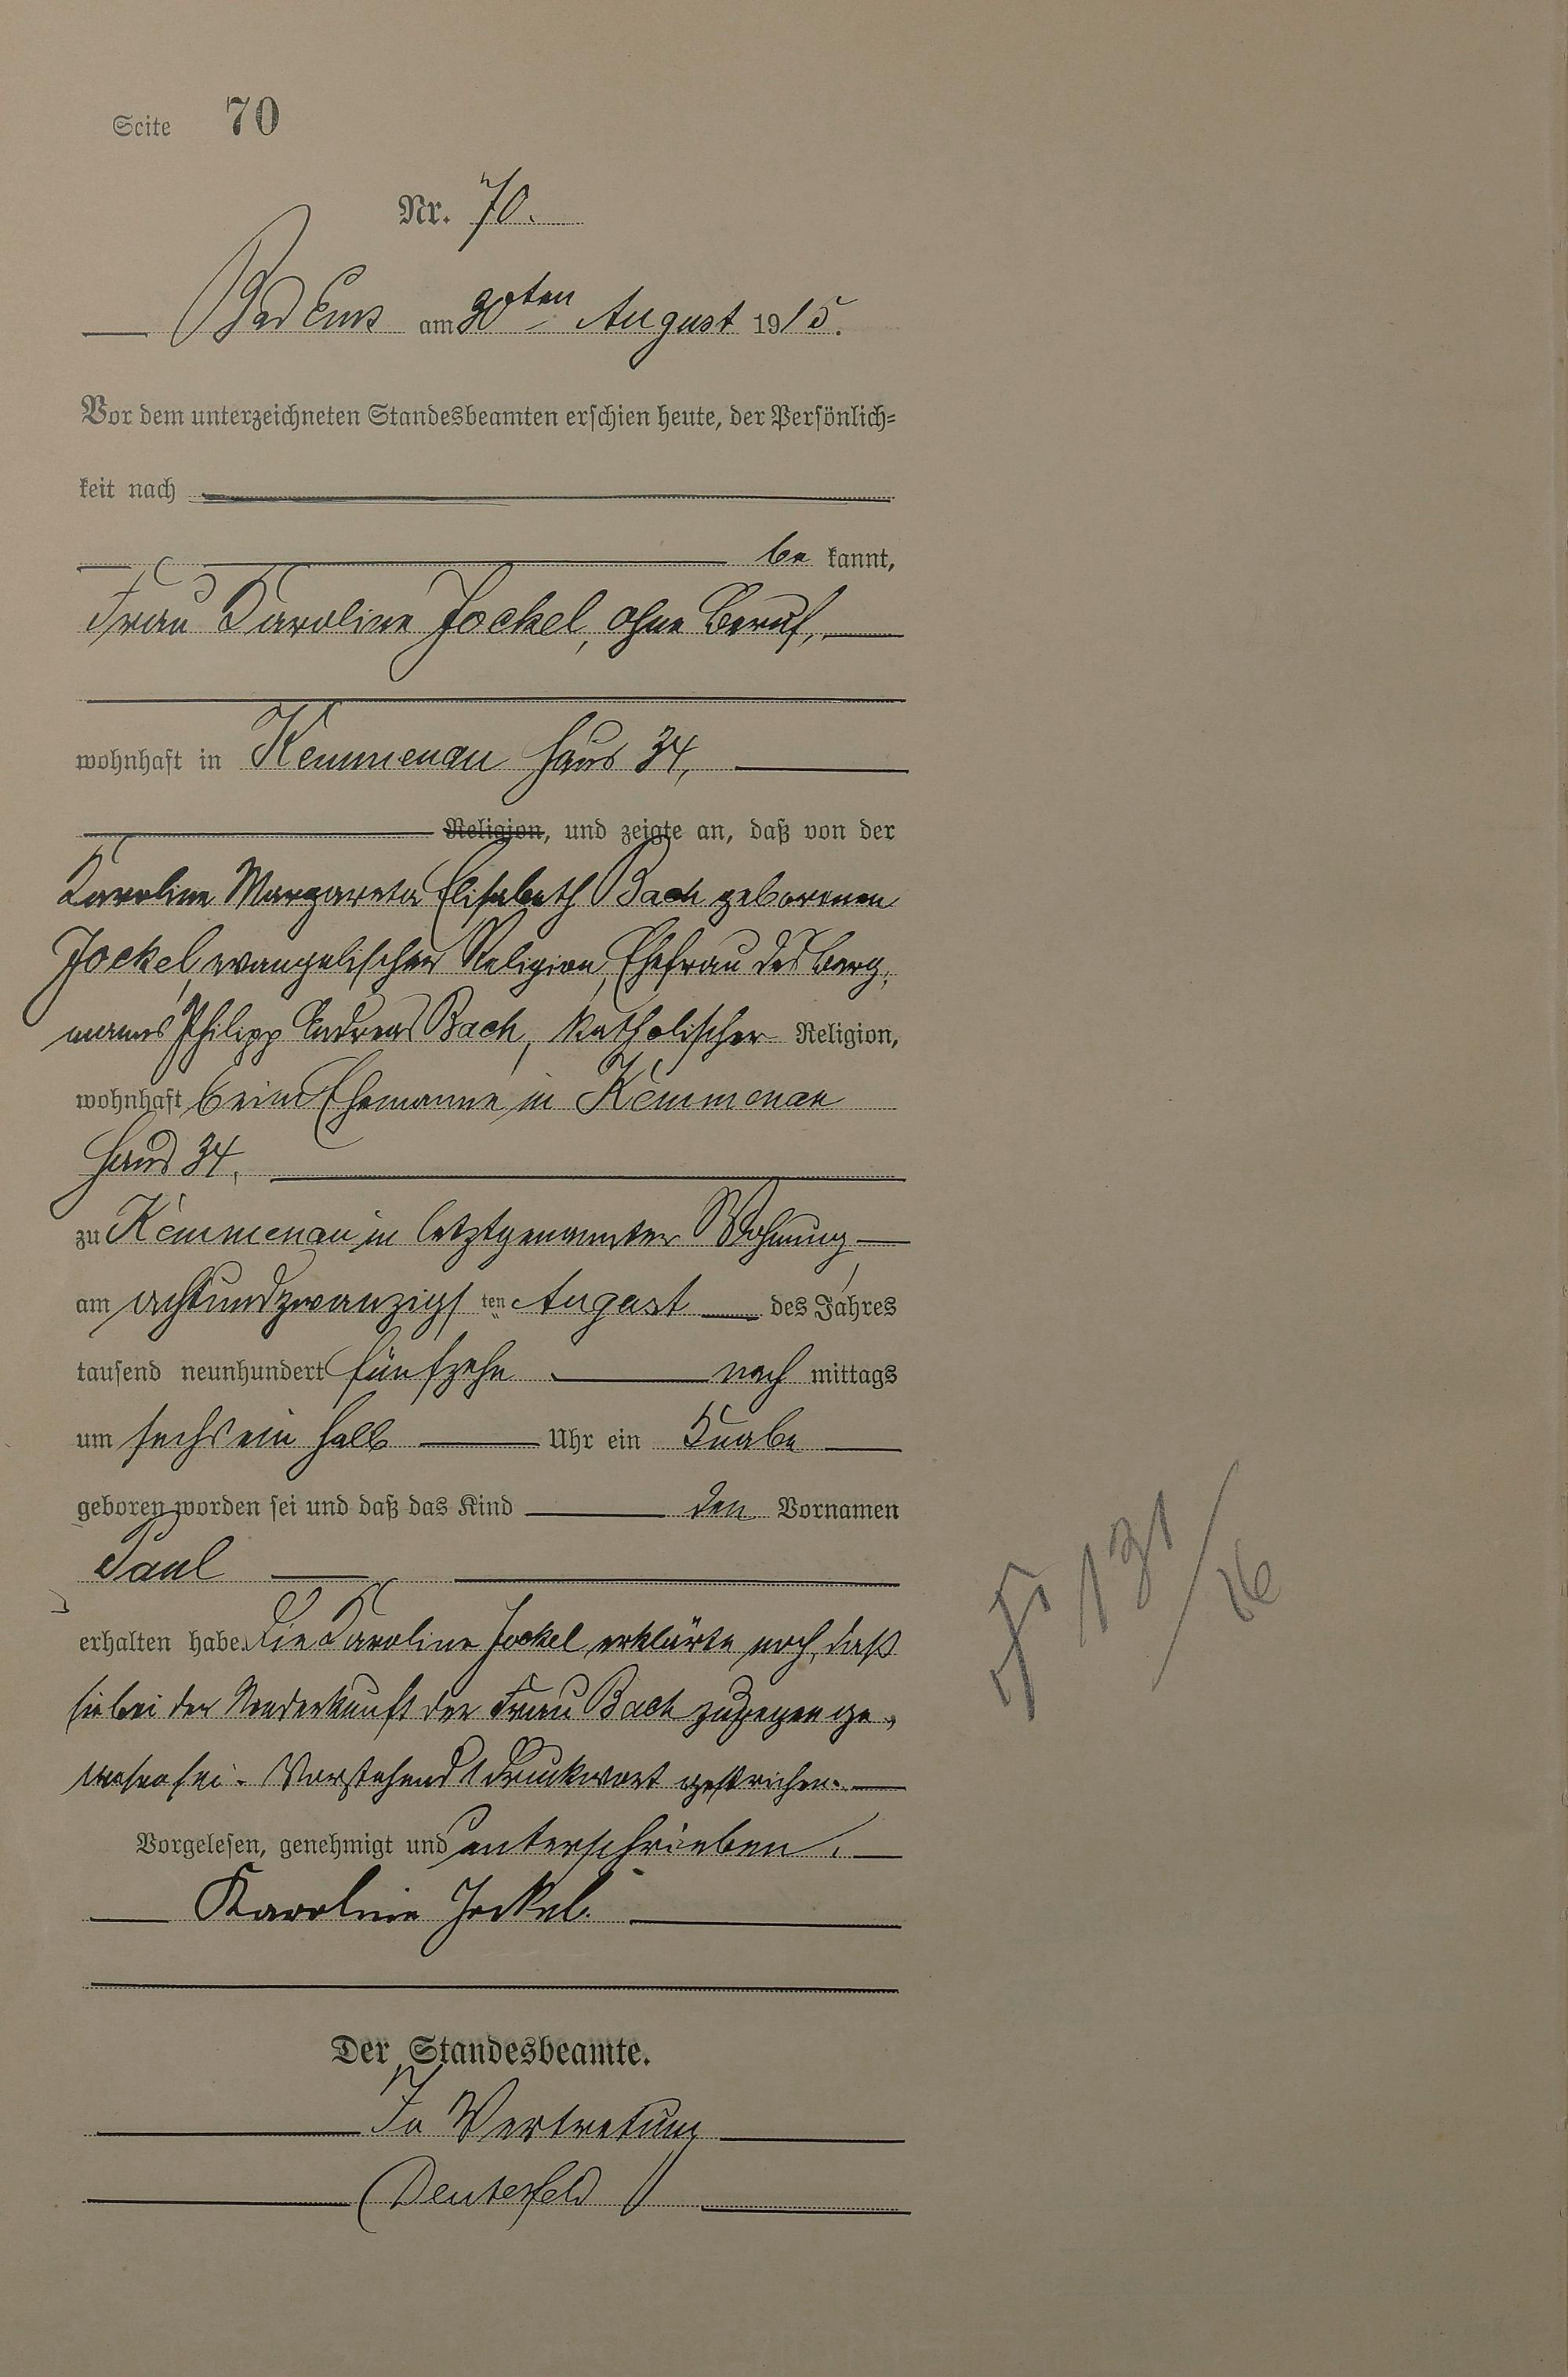 Seite 70
Nr. 70.
Bad Ems am 30ten August 1915.
Vor dem unterzeichneten Standesbeamten erschien heute, der Persönlich-
keit nach
be kannt,
Frau Karoline Jockel, ohne Beruf,
wohnhaft in Kemmenau Haus 34,
Religion, und zeigte an, daß von der
Karoline Margareta Elisabeth Bach geborenen
Jockel, evangelischer Religion, Ehefrau des Berg-
manns Philipp Andreas Bach, katholischer Religion,
wohnhaft beim Ehemanne in Kemmenau
Haus 34,
zu Kemmenau in letztgenannter Wohnung,
am achtundzwanzigsten August des Jahres
tausend neunhundert fünfzehn nach mittags
um sechs ein halb Uhr ein Knabe
geboren worden sei und daß das Kind den Vornamen
Paul
erhalten habe. Die Karoline Jockel erklärte noch, daß
sie bei der Niederkunft der Frau Bach zugegen ge-
wesen sei. Vorstehend 1 Druckwort gestrichen.
Vorgelesen, genehmigt und unterschrieben.
Karoline Jockel.
Der Standesbeamte.
In Vertretung
131/16